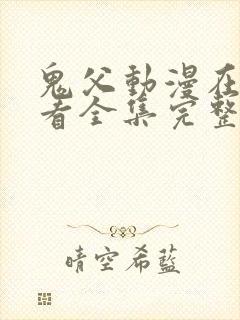 鬼父動漫在
看全集完整
晴空希藍